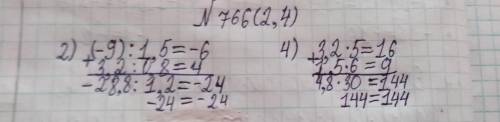 №766(2,4)
2) (-9) : 1,5 = -6
+ 3,2 : 0,8 = 4
-28,8 : 1,2 = -24
-24 = -24
4) 3,2 · 5 = 16
+ 1,5 · 6 = 9
4,8 · 30 = 144
144 = 144